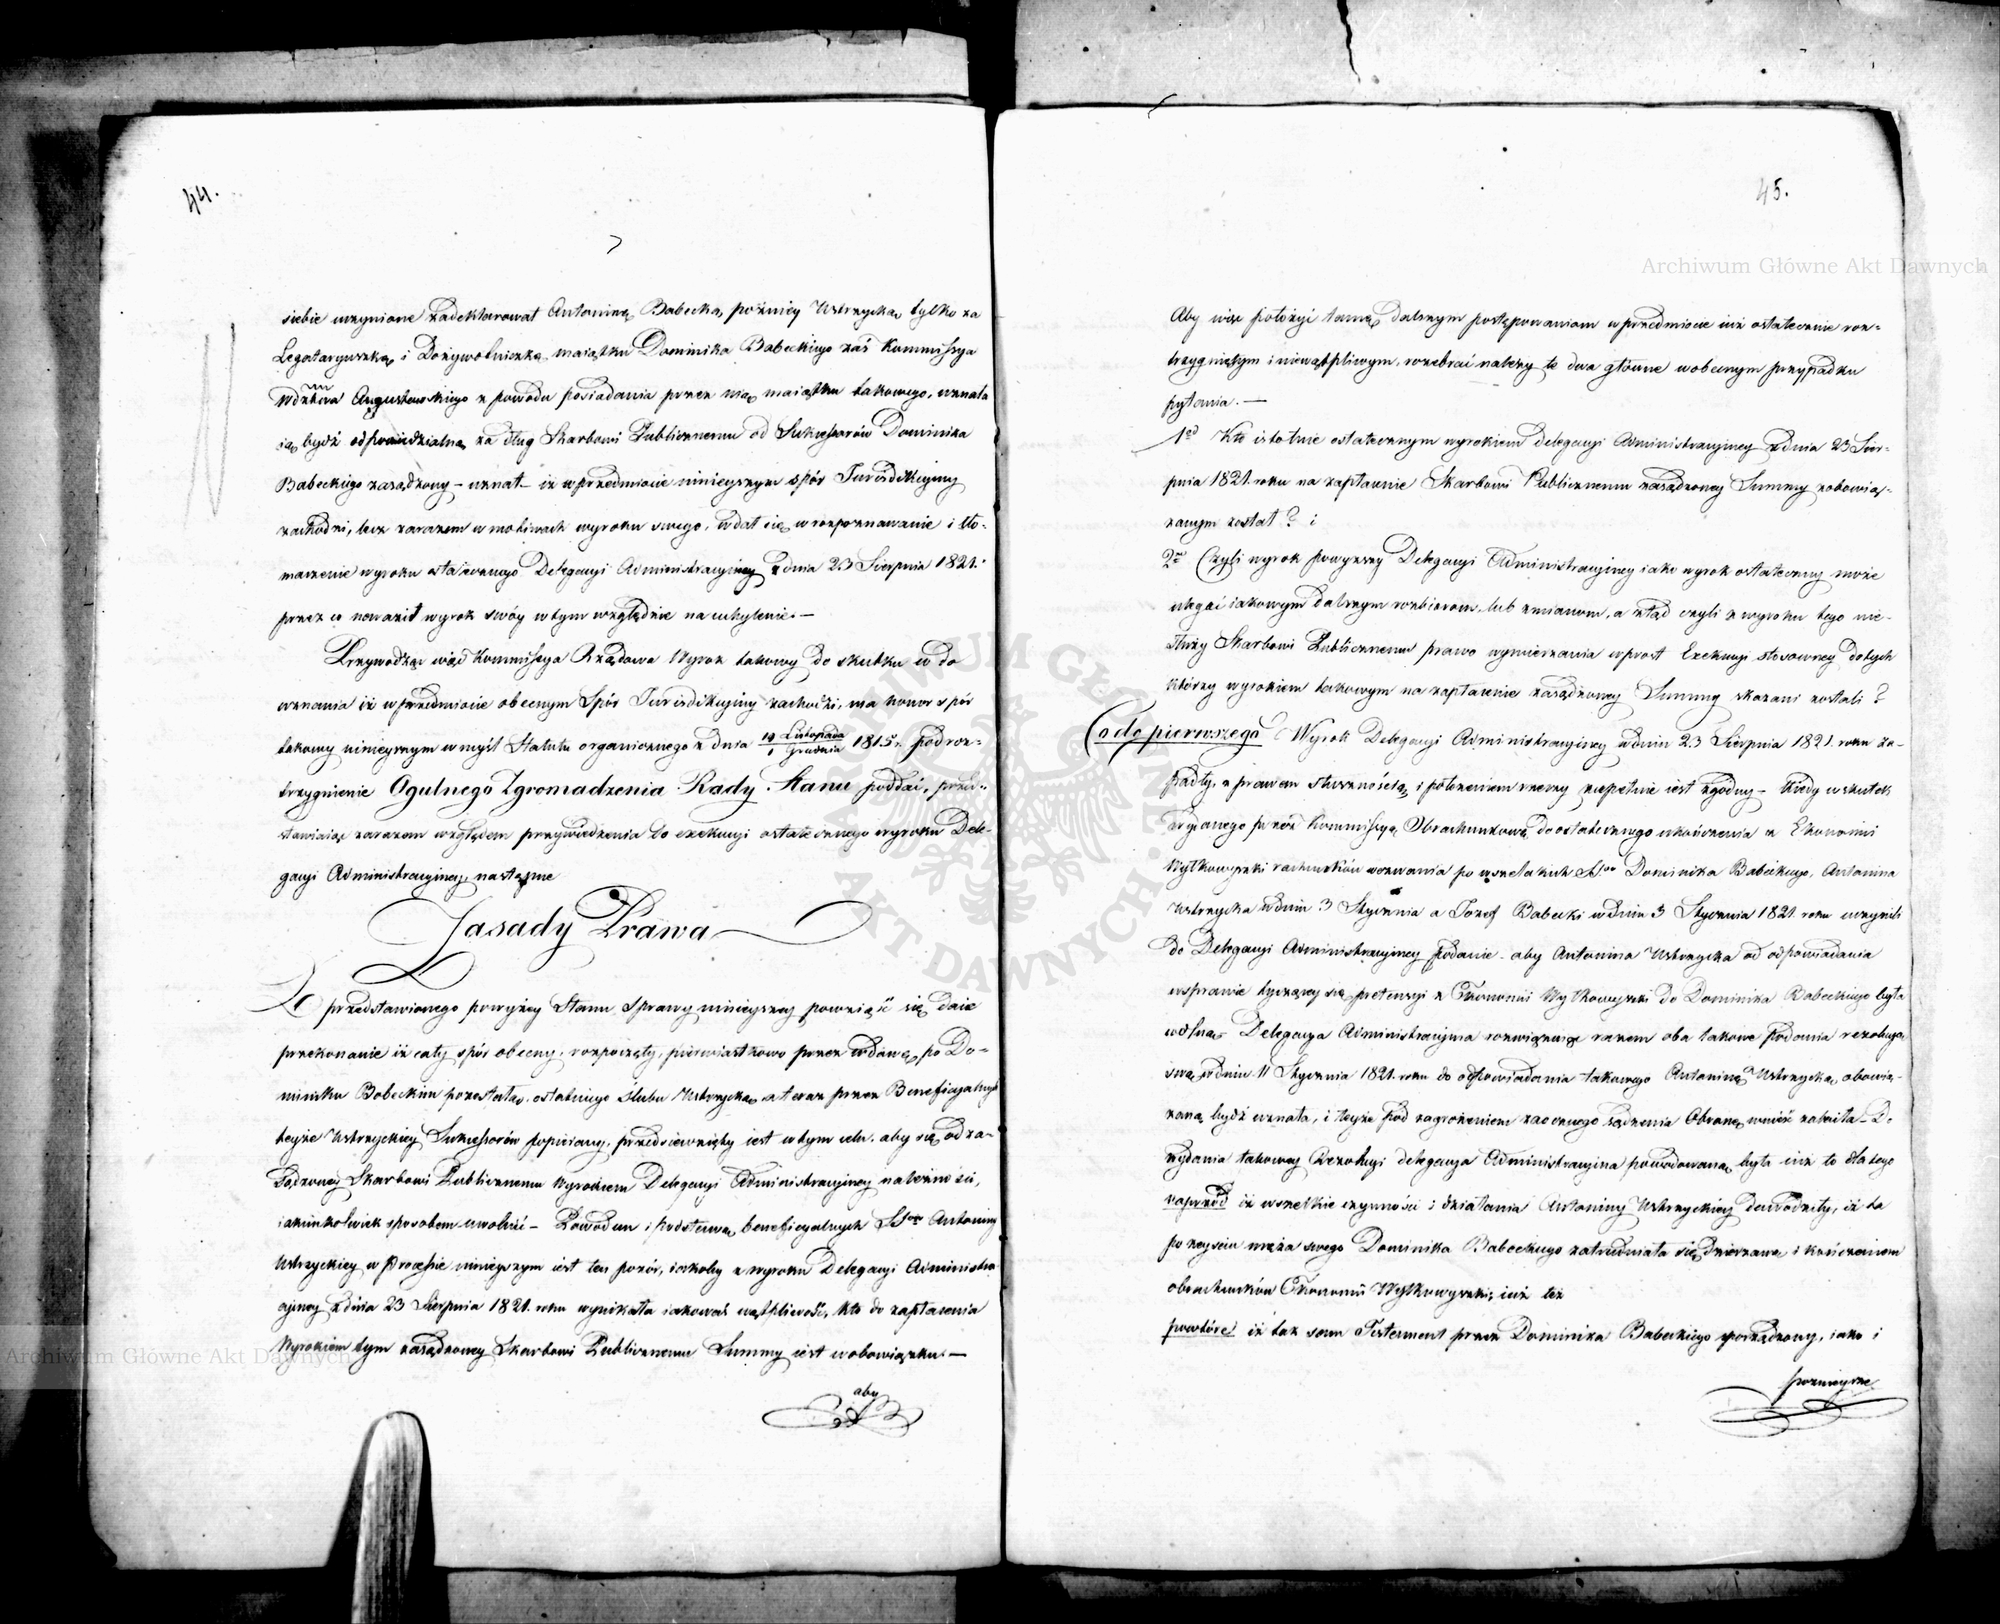 44.
siebie uczynione zadeklarował Antoninę Babecką, poźniey Ustrzycką tylko za
Legataryuszkę i Dożywotniczkę maiątku Dominika Babeckiego zaś Kommissya
Wdztwa Augustowskiego z powodu posiadania przez nią maiątku takowego, uznała
ią bydź odpowiedzialną za dług Skarbowi Publicznemu od Sukcessorów Dominika
Babeckiego zasądzony – uznał – iż w przedmiocie ninieyszym spór Jurisdikcyiny
zachodzi, lecz zarazem w motiwach wyroku swego, wdał się w rozpoznawanie i tło-
maczenie wyroku ostatecznego Delegacyi Administracyiney z dnia 23 Sierpnia 1821.
przez co naraził wyrok swóy w tym względzie na uchylenie. —
Przywodząc więc Kommissya Rządowa Wyrok takowy do skutku w do
uznania iż w przedmiocie obecnym Spór Jurisdikcyiny zachodzi, ma honor spór
takowy ninieyszym w myśl Statutu organicznego z dnia 19 Listopada / 1 Grudnia 1815 r. pod roz-
trzygnienie Ogulnego Zgromadzenia Rady Stanu poddać, przed-
stawiaiąc zarazem względem przywiedzenia do exekucyi ostatecznego wyroku Dele-
gacyi Administracyiney następne
Zasady Prawa
Z przedstawionego powyżey Stanu Sprawy ninieyszey powziąść się daie
przekonanie iż cały spór obecny, rozpoczęty, pierwiastkowo przez wdowę po Do-
miniku Babeckim pozostałą, ostatniego ślubu Ustrzycką a teraz przez Beneficyalnych
teyże Ustrzyckiey Sukcessorów popierany, przedsiewzięty iest w tym celu, aby się od za-
sądzoney Skarbowi Publicznemu Wyrokiem Delegacyi Administracyiney należności,
iakimkolwiek sposobem uwolnić – Powodem i podstawą beneficyalnych SSów Antoniny
Ustrzyckiey w Processie ninieyszym iest ten pozór, iakoby z wyroku Delegacyi Administra-
cyiney z dnia 23 Sierpnia 1821. roku wynikała iakowaś wątpliwość, kto do zapłacenia
Wyrokiem tym zasądzoney Skarbowi Publicznemu Summy iest w obowiązku. —
aby
45.
Aby więc położyć tamę dalszym postępowaniom w przedmiocie iuż ostatecznie roz-
trzygniętym i niewątpliwym, rozebrać należy te dwa główne w obecnym przypadku
pytania. —
1od Kto istotnie ostatecznym wyrokiem delegacyi Administracyiney z dnia 23 Sier-
pnia 1821. roku na zapłacenie Skarbowi Publicznemu zasądzoney Summy zobowią-
zanym został? i
2re Czyli wyrok powyższy Delegacyi Administracyiney iako wyrok ostateczny może
ulegać iakowym dalszym rozbiorom, lub zmianom, a ztąd czyli z wyroku tego nie-
służy Skarbowi Publicznemu prawo wymierzania wprost Exekucyi stosowney do tych
którzy wyrokiem takowym na zapłacenie zasądzoney Summy skazani zostali?
Co do pierwszego Wyrok Delegacyi Administracyiney w dniu 23 Sierpnia 1821. roku za-
padły, z prawem słusznością i położeniem rzeczy zupełnie iest zgodny – Kiedy w skutek
wydanego przez Kommissyą Obrachunkową do ostatecznego ukończenia z Ekonomii
Wytkowyszki rachunków wezwania po wszelakich SSów Dominika Babeckiego, Antonina
Ustrzycka w dniu 3 Stycznia a Jozef Babecki w dniu 5 Stycznia 1821. roku uczynili
do Delegacyi Administracyiney podanie – aby Antonina Ustrzycka od odpowiadania
w sprawie tyczącey się pretensyi z Ekonomii Wytkowyszki do Dominika Babeckiego była
wolną – Delegacya Administracyina rozwiązuiąc razem oba takowe podania rezolucyą
swą w dniu 11 Stycznia 1821. roku do odpowiadania takowego Antoninę Ustrzycką obowią-
zaną bydź uznała, i teyże pod zagrożeniem zaocznego sądzenia Obronę wnieść zaleciła – Do
wydania takowey Rezolucyi delegacya Administracyina powodowaną była iuż to dla tego
naprzód iż wszelkie czynności i działania Antoniny Ustrzyckiey dowodziły, iż ta
po zeyściu męża swego Dominika Babeckiego zatrudniała się dzierzawą i kończeniem
obrachunków Ekonomii Wytkowyszki, iuż też
powtóre iż tak sam Testament przez Dominika Babeckiego sporządzony, iako i
poznieysze
Archiwum Główne Akt Dawnych
Archiwum Główne Akt Dawnych
ARCHIWUM GŁÓWNE AKT DAWNYCH